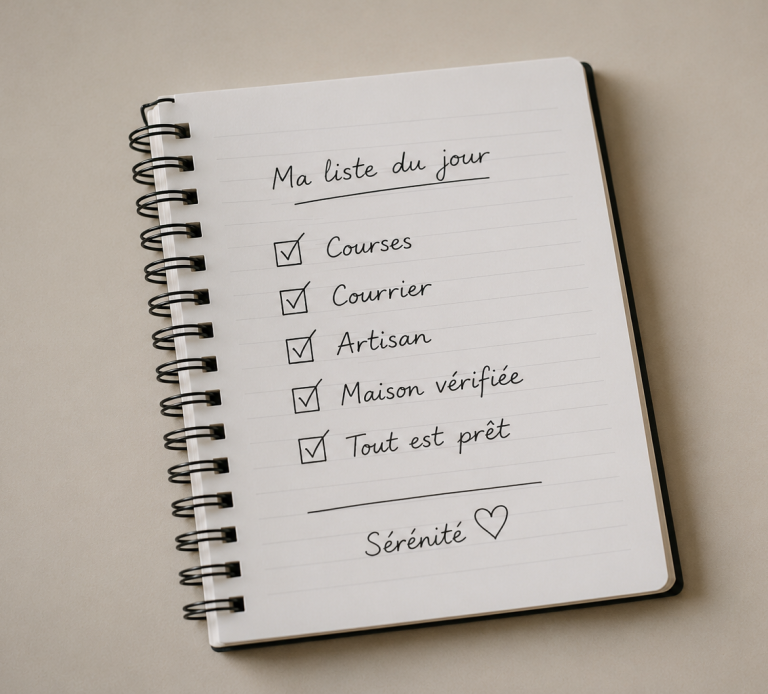 Ma liste du jour
Courses
Courrier
Artisan
Maison vérifiée
Tout est prêt
Sérénité